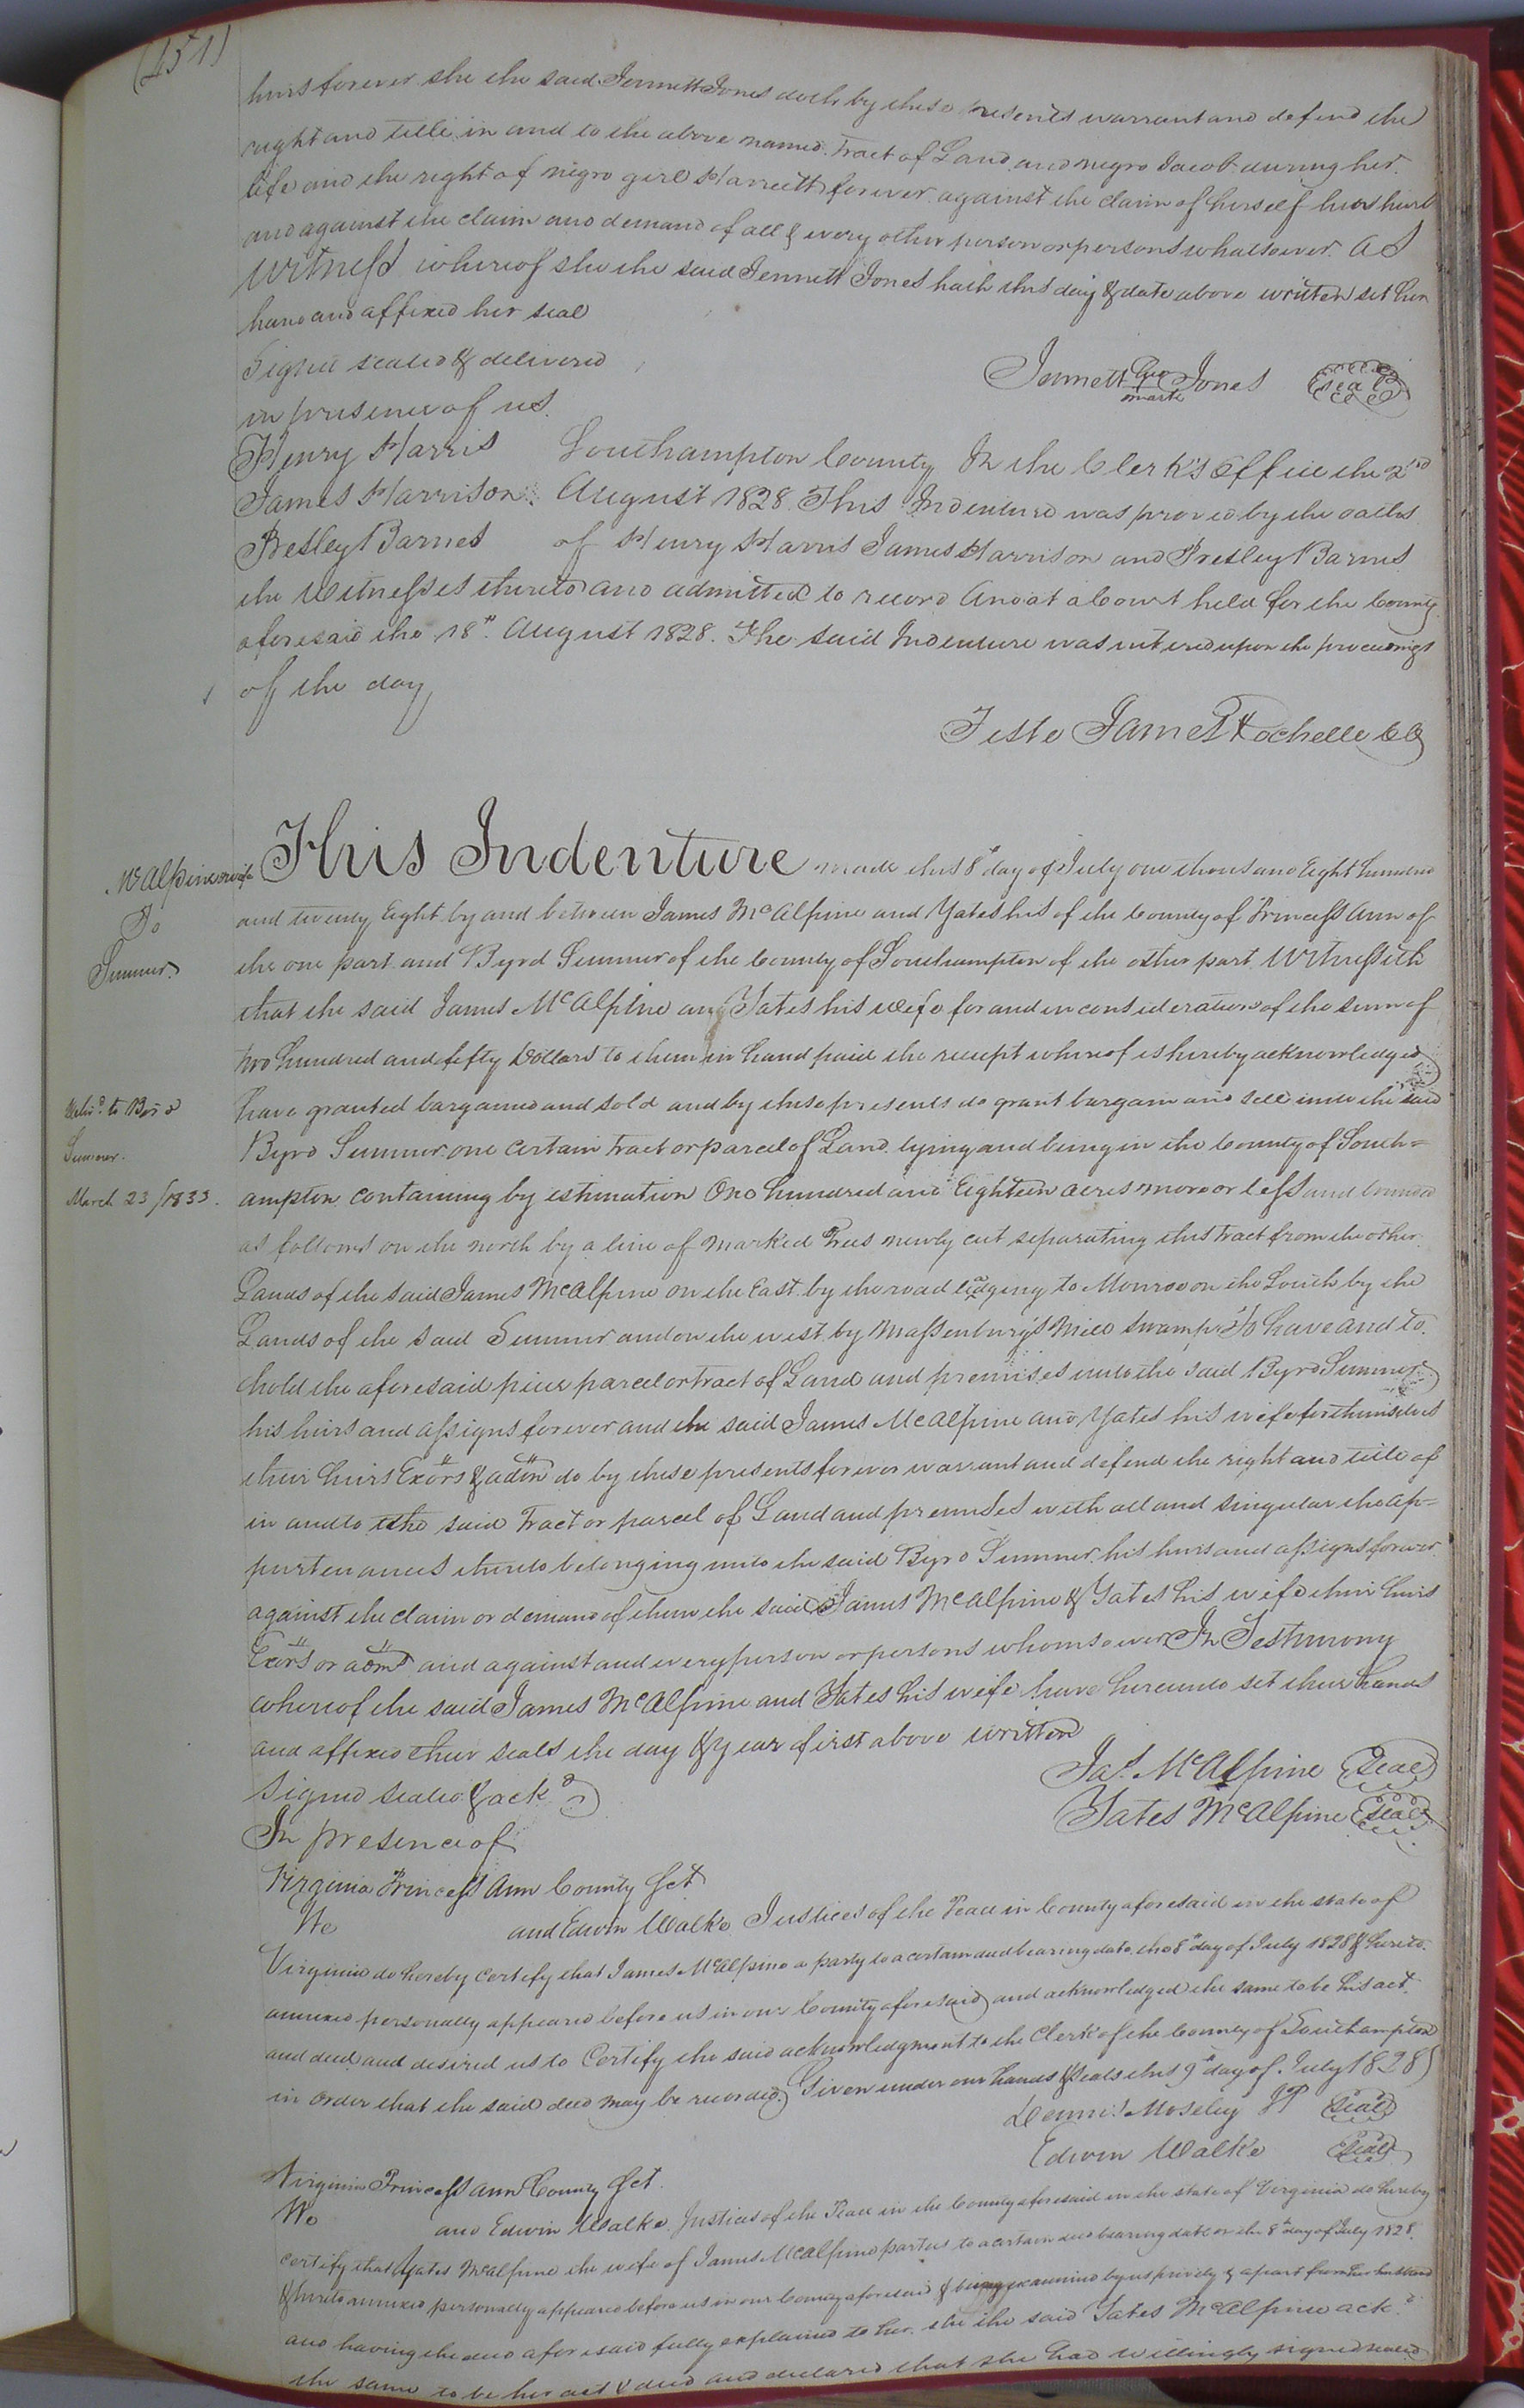 (451)
heirs forever she the said Jennett Jones doth by these presents warrant and defend the
right and title in and to the above named Tract of Land and negro Jacob during her
life and the right of negro girl Harriett forever against the claim of herself her heirs
and against the claim and demand of all & every other person or persons whatsoever. As
Witness whereof she the said Jennett Jones hath this day & date above written set her
hand and affixed her seal
Signed sealed & delivered
in presence of us.
Jennett her mark Jones Seal
Henry Harris
James Harrison
Presley Barnes
Southampton County In the Clerk's Office the 2nd
August 1828. This Indenture was proved by the oaths
of Henry Harris James Harrison and Presley Barnes
the Witnesses thereto and admitted to record And at a Court held for the County
aforesaid the 18th August 1828. The said Indenture was entered upon the proceedings
of the day
Teste James Rochelle CC
McAlpine & wife
To
Sumner
This Indenture made this 8th day of July one thousand Eight hundred
and twenty Eight by and between James McAlpine and Yates his of the County of Princess Ann of
the one part and Byrd Sumner of the County of Southampton of the other part Witnesseth
that the said James McAlpine and Yates his wife for and in consideration of the sum of
two hundred and fifty Dollars to them in hand paid the receipt whereof is hereby acknowledged
Delivd. to Byrd
Sumner.
March 23/1833.
have granted bargained and sold and by these presents do grant bargain and sell unto the said
Byrd Sumner one certain tract or parcel of Land lying and being in the County of South=
ampton containing by estimation One hundred and Eighteen acres more or less and bounded
as follows on the north by a line of marked Trees newly cut separating this tract from the other
Lands of the said James McAlpine on the East by the road leadging to Monroe on the South by the
Lands of the said Sumner and on the west by Massenburg's Mill swamp To have and to
hold the aforesaid piece parcel or tract of Land and premises unto the said Byrd Sumner
his heirs and assigns forever and the said James McAlpine and Yates his wife for themselves
their heirs Exors & adm do by these presents forever warrant and defend the right and title of
in and to the said Tract or parcel of Land and premises with all and singular the ap=
purtenances thereto belonging unto the said Byrd Sumner his heirs and assigns forever
against the claim or demand of them the said James McAlpine & Yates his wife their heirs
Exors or adms and against and every person or persons whomsoever In Testimony
whereof the said James McAlpine and Yates his wife have hereunto set their hands
and affixed their seals the day & year first above written
Signed sealed & ackd
In presence of
Jas. McAlpine Seal
Yates McAlpine Seal
Virginia Princess Ann County Sct
We and Edwin Walke Justices of the Peace in County aforesaid in the state of
Virginia do hereby certify that James McAlpine a party to a certain deed bearing date the 8th day of July 1828 & hereto
annexed personally appeared before us in our County aforesaid and acknowledged the same to be his act
and deed and desired us to Certify the said acknowledgment to the Clerk of the County of Southampton
in order that the said deed may be recorded. Given under our hands & seals this 9th day of July 1828
Dennis Moseley JP Seal
Edwin Walke Seal
Virginia Princess Ann County Sct.
We and Edwin Walke Justices of the Peace in the County aforesaid in the state of Virginia do hereby
certify that Yates McAlpine the wife of James McAlpine parties to a certain deed bearing date on the 8th day of July 1828
& hereto annexed personally appeared before us in our County aforesaid & being examined by us privily & apart from her husband
and having the deed aforesaid fully explained to her she the said Yates McAlpine ackd
the same to be her act & deed and declared that she had willingly signed sealed